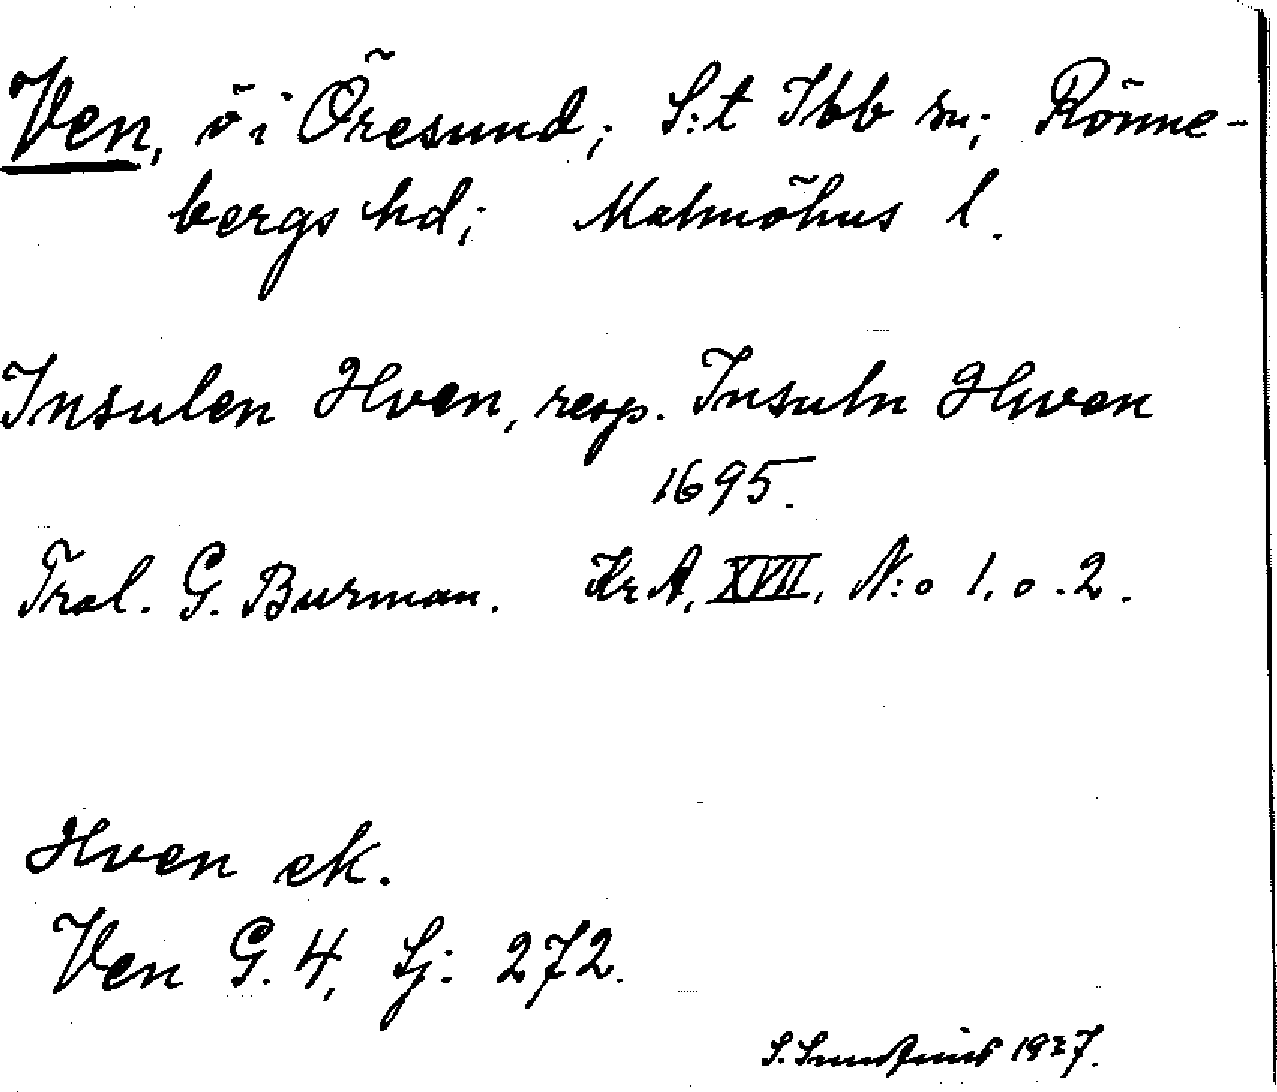 Ven, ö i Öresund; S:t Ibb sn; Rönne-
bergs hd; Malmöhus l.
Insulen Hven, resp. Insuln Hwen
1695.
Trol. G. Burman. Kr A, XVII, N:o 1. o. 2.
Hven ek.
Ven G. 4, Sj: 272.
S. 1927.